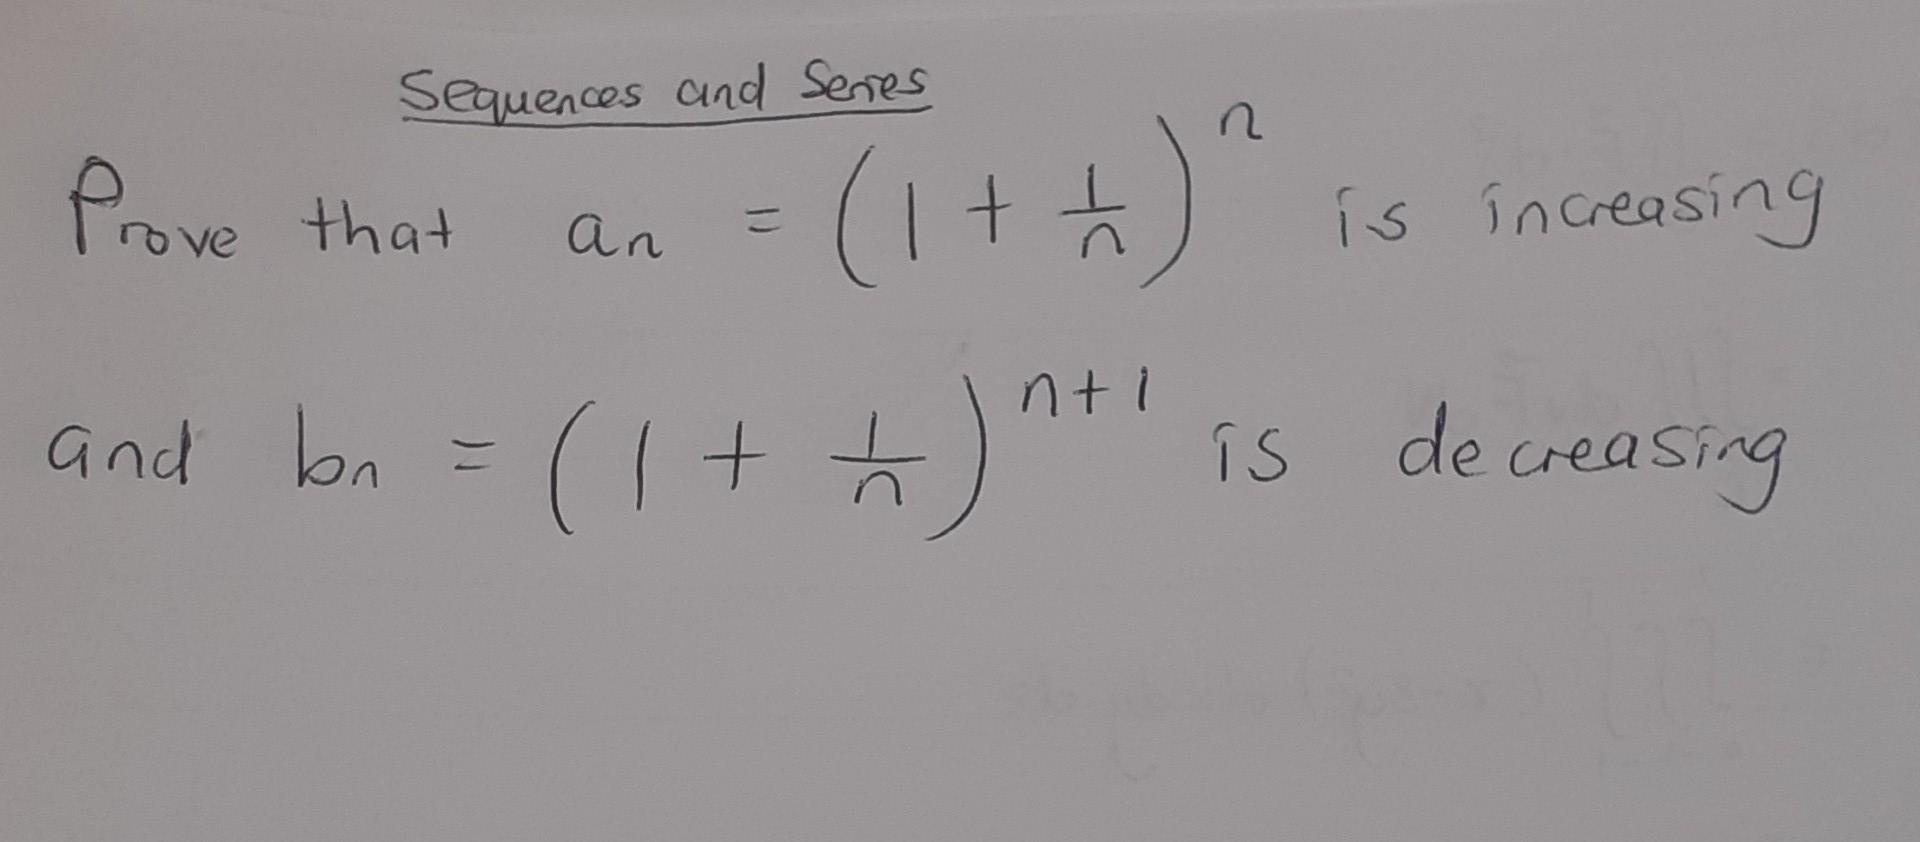 Sequences and Series
Prove that aₙ = (1 + 1/n)ⁿ is increasing
and bₙ = (1 + 1/n)ⁿ⁺¹ is decreasing